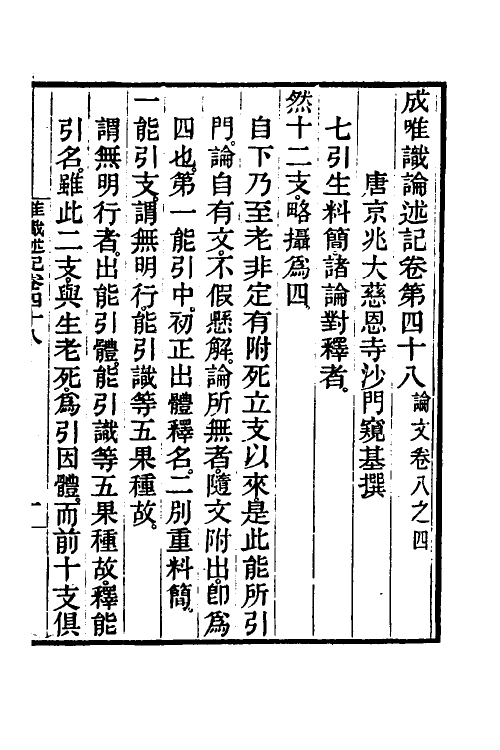 成唯識論述記卷第四十八 論文卷八之四
唐京兆大慈恩寺沙門窺基撰
七引生料簡諸論對釋者。
然十二支。略攝爲四。
自下乃至老非定有附死立支以來。是此能所引
門。論自有文。不假懸解。論所無者。隨文附出。卽爲
四也。第一能引中。初正出體釋名。二別重料簡。
一能引支。謂無明行。能引識等五果種故。
謂無明行者。出能引體。能引識等五果種故。釋能
引名。雖此二支。與生老死。爲引因體。而前十支俱
唯識述記卷四十八
一